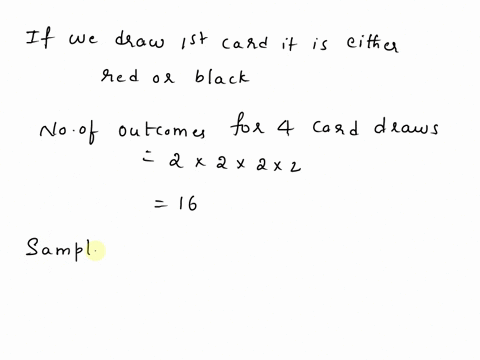 If we draw 1st card it is either
red or black
No. of outcomes for 4 card draws
= 2 × 2 × 2 × 2
= 16
Sampl